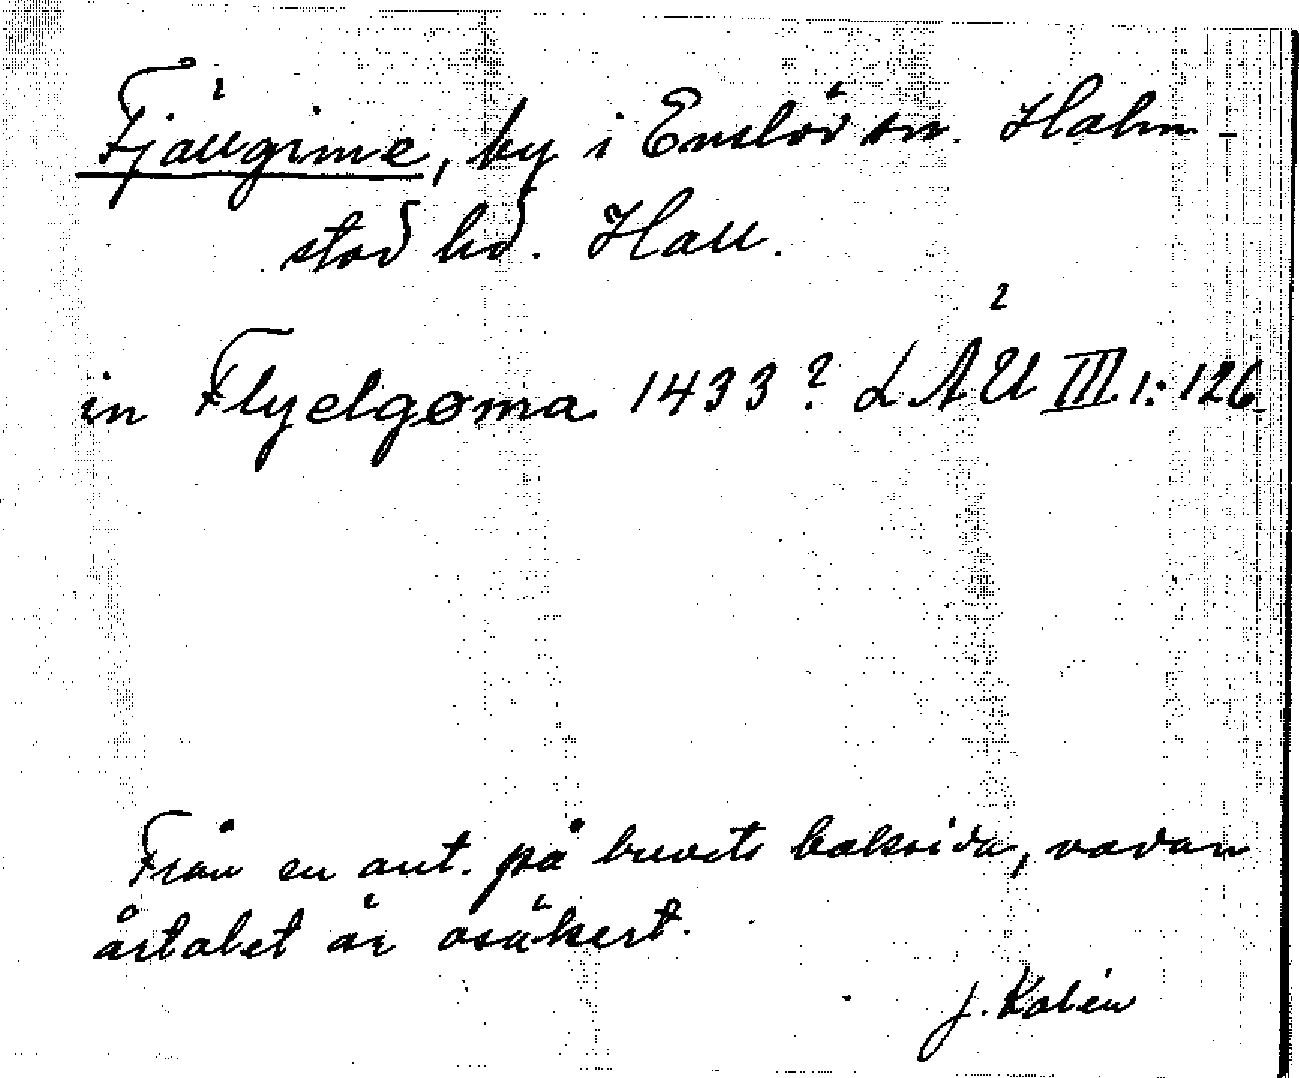 Fjällgime, by i Enslöv sn. Halm-
stad hd. Hall.
in Flyelgøma 1433? LÄU III 1: 126.
Från en ant. på brevets baksida, vadan
årtalet är osäkert.
J. Kalén